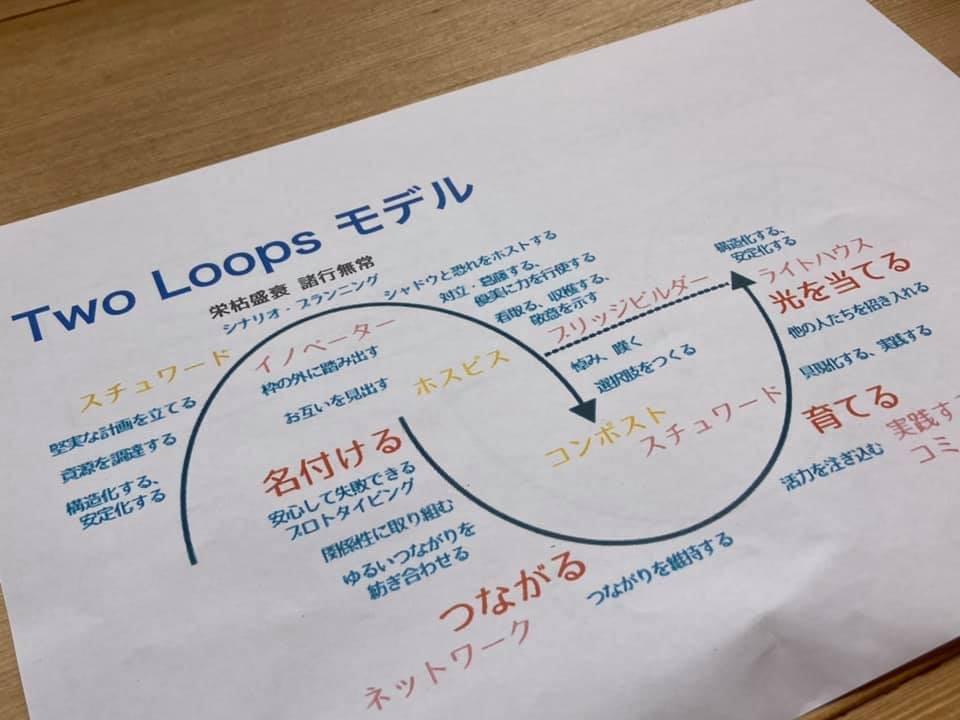 Two Loops モデル
栄枯盛衰 諸行無常
シナリオ・プランニング
シャドウと恐れをホストする
対立・葛藤する、
優美に力を行使する
看取る、収穫する、
敬意を示す
スチュワード
堅実な計画を立てる
資源を調達する
構造化する、
安定化する
イノベーター
枠の外に踏み出す
お互いを見出す
ホスピス
ブリッジビルダー
悼み、嘆く
選択肢をつくる
コンポスト
スチュワード
構造化する、
安定化する
ライトハウス
光を当てる
他の人たちを招き入れる
具現化する、実践する
育てる
実践す
コミ
活力を注ぎ込む
名付ける
安心して失敗できる
プロトタイピング
関係性に取り組む
ゆるいつながりを
紡ぎ合わせる
つながる
つながりを維持する
ネットワーク